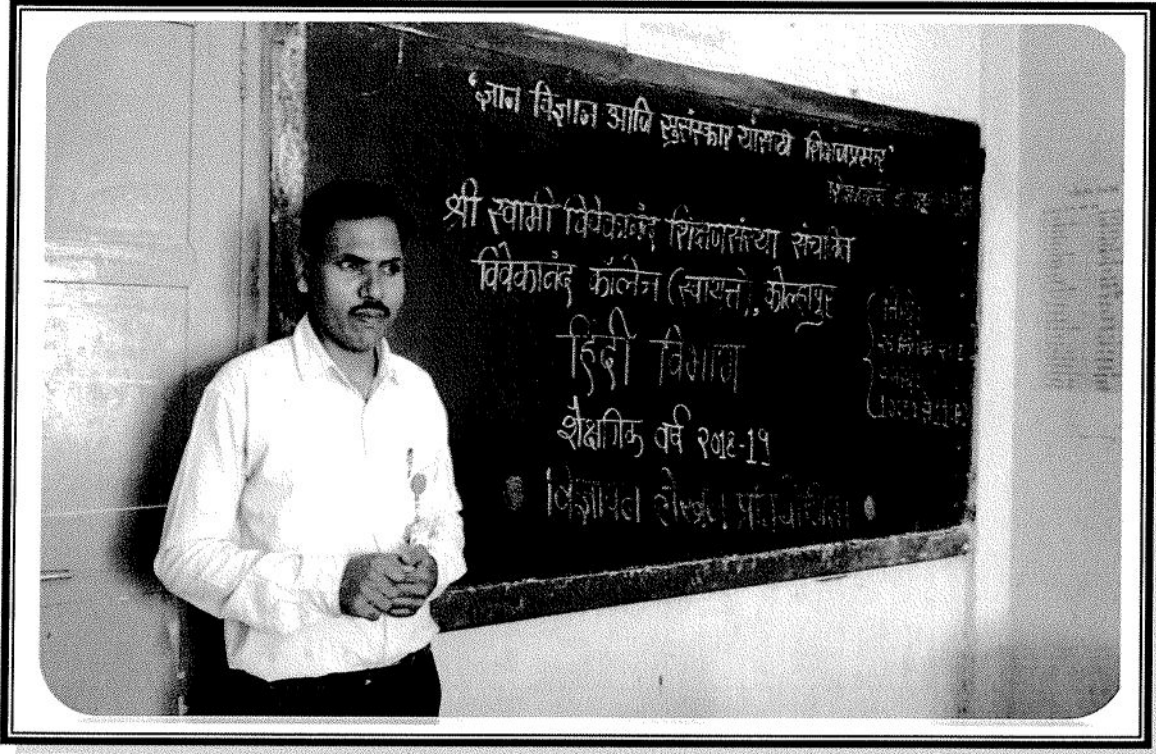 'ज्ञान विज्ञान आणि सुसंस्कार यांसाठी शिक्षणप्रसार'
श्री स्वामी विवेकानंद शिक्षणसंस्था संचलित
विवेकानंद कॉलेज (स्वायत्त), कोल्हापूर
हिंदी विभाग
शैक्षणिक वर्ष २०१८-19
विज्ञापन लेखन प्रतियोगिता